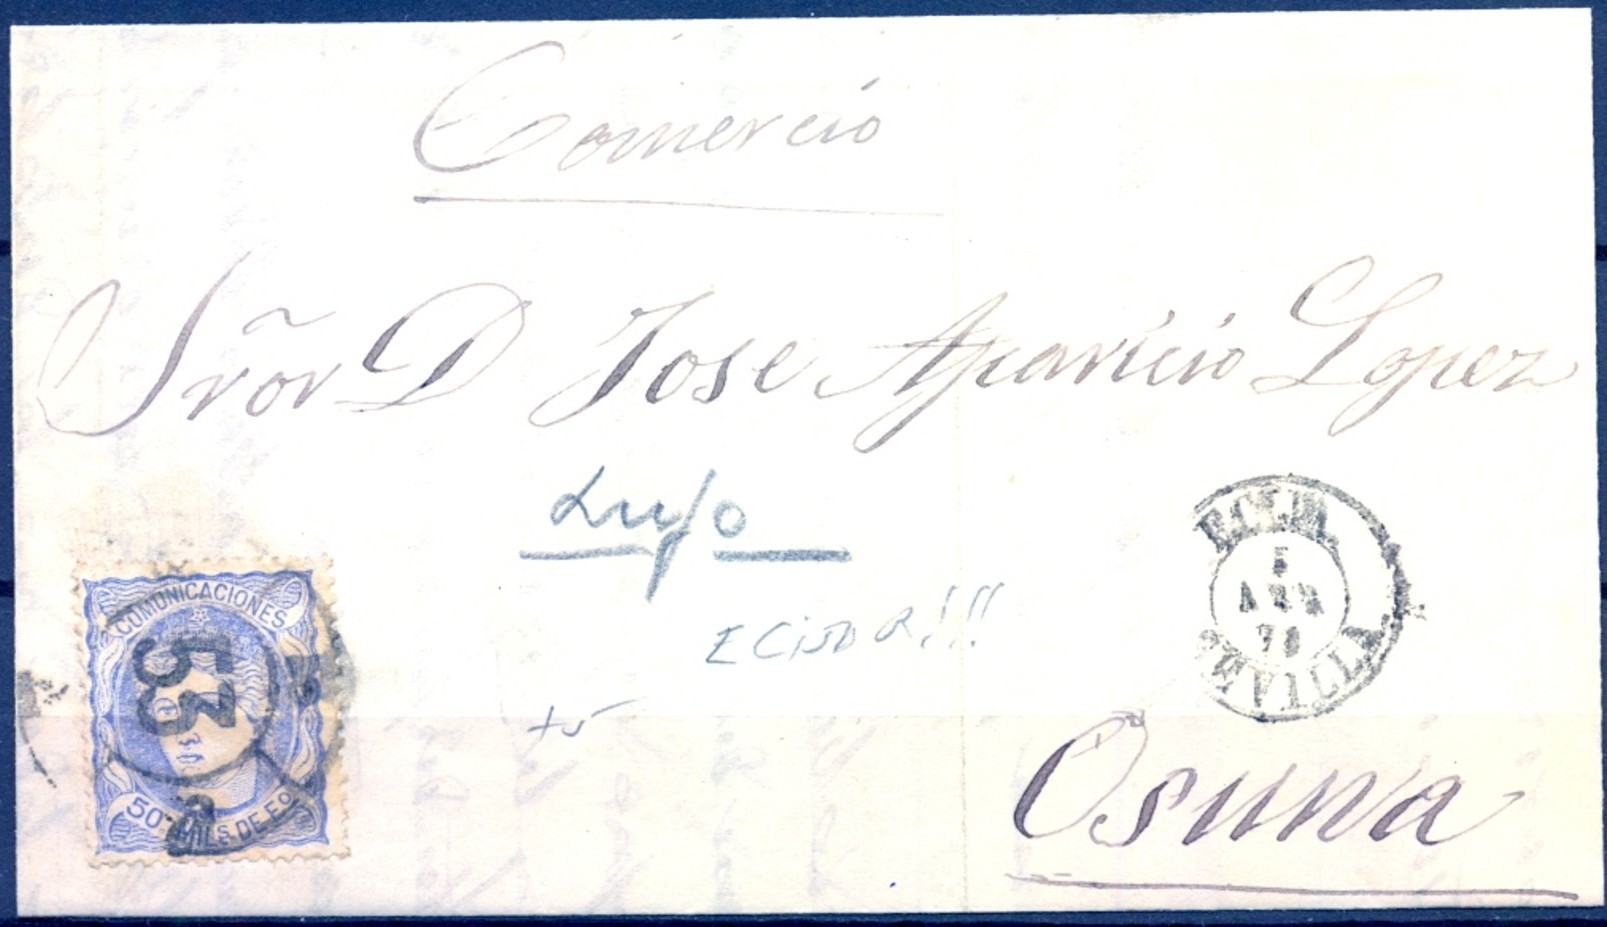 Comercio
Sr̃or D Jose Aparicio Lopez
Lujo
ECIJA
5
ABR
71
SEVILLA
COMUNICACIONES
53
50 MILS DE Eo
+5
Osuna